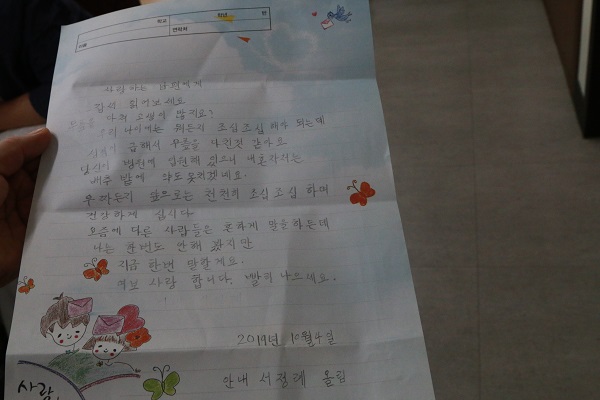 학교 학년 반
이름 연락처
사랑하는 남편에게
감서 읽어보세요
무릎을 아퍼 고생이 많지요?
우리 나이에는 뭐든지 조심조심 해야 되는데
성격이 급해서 무릎을 다친것 같아요
당신이 병원에 입원해 있으니 내혼자서는
배추 밭에 약도 못치겠네요.
무어든지 앞으로는 천천히 조심조심 하며
건강하게 삽시다
요즘에 다른 사람들은 흔하게 말을하는데
나는 한번도 안해 봤지만
지금 한번 말할게요.
여보 사랑 합니다. 빨리 나으세요.
2019년 10월 4일
안내 서정례 올림
사랑